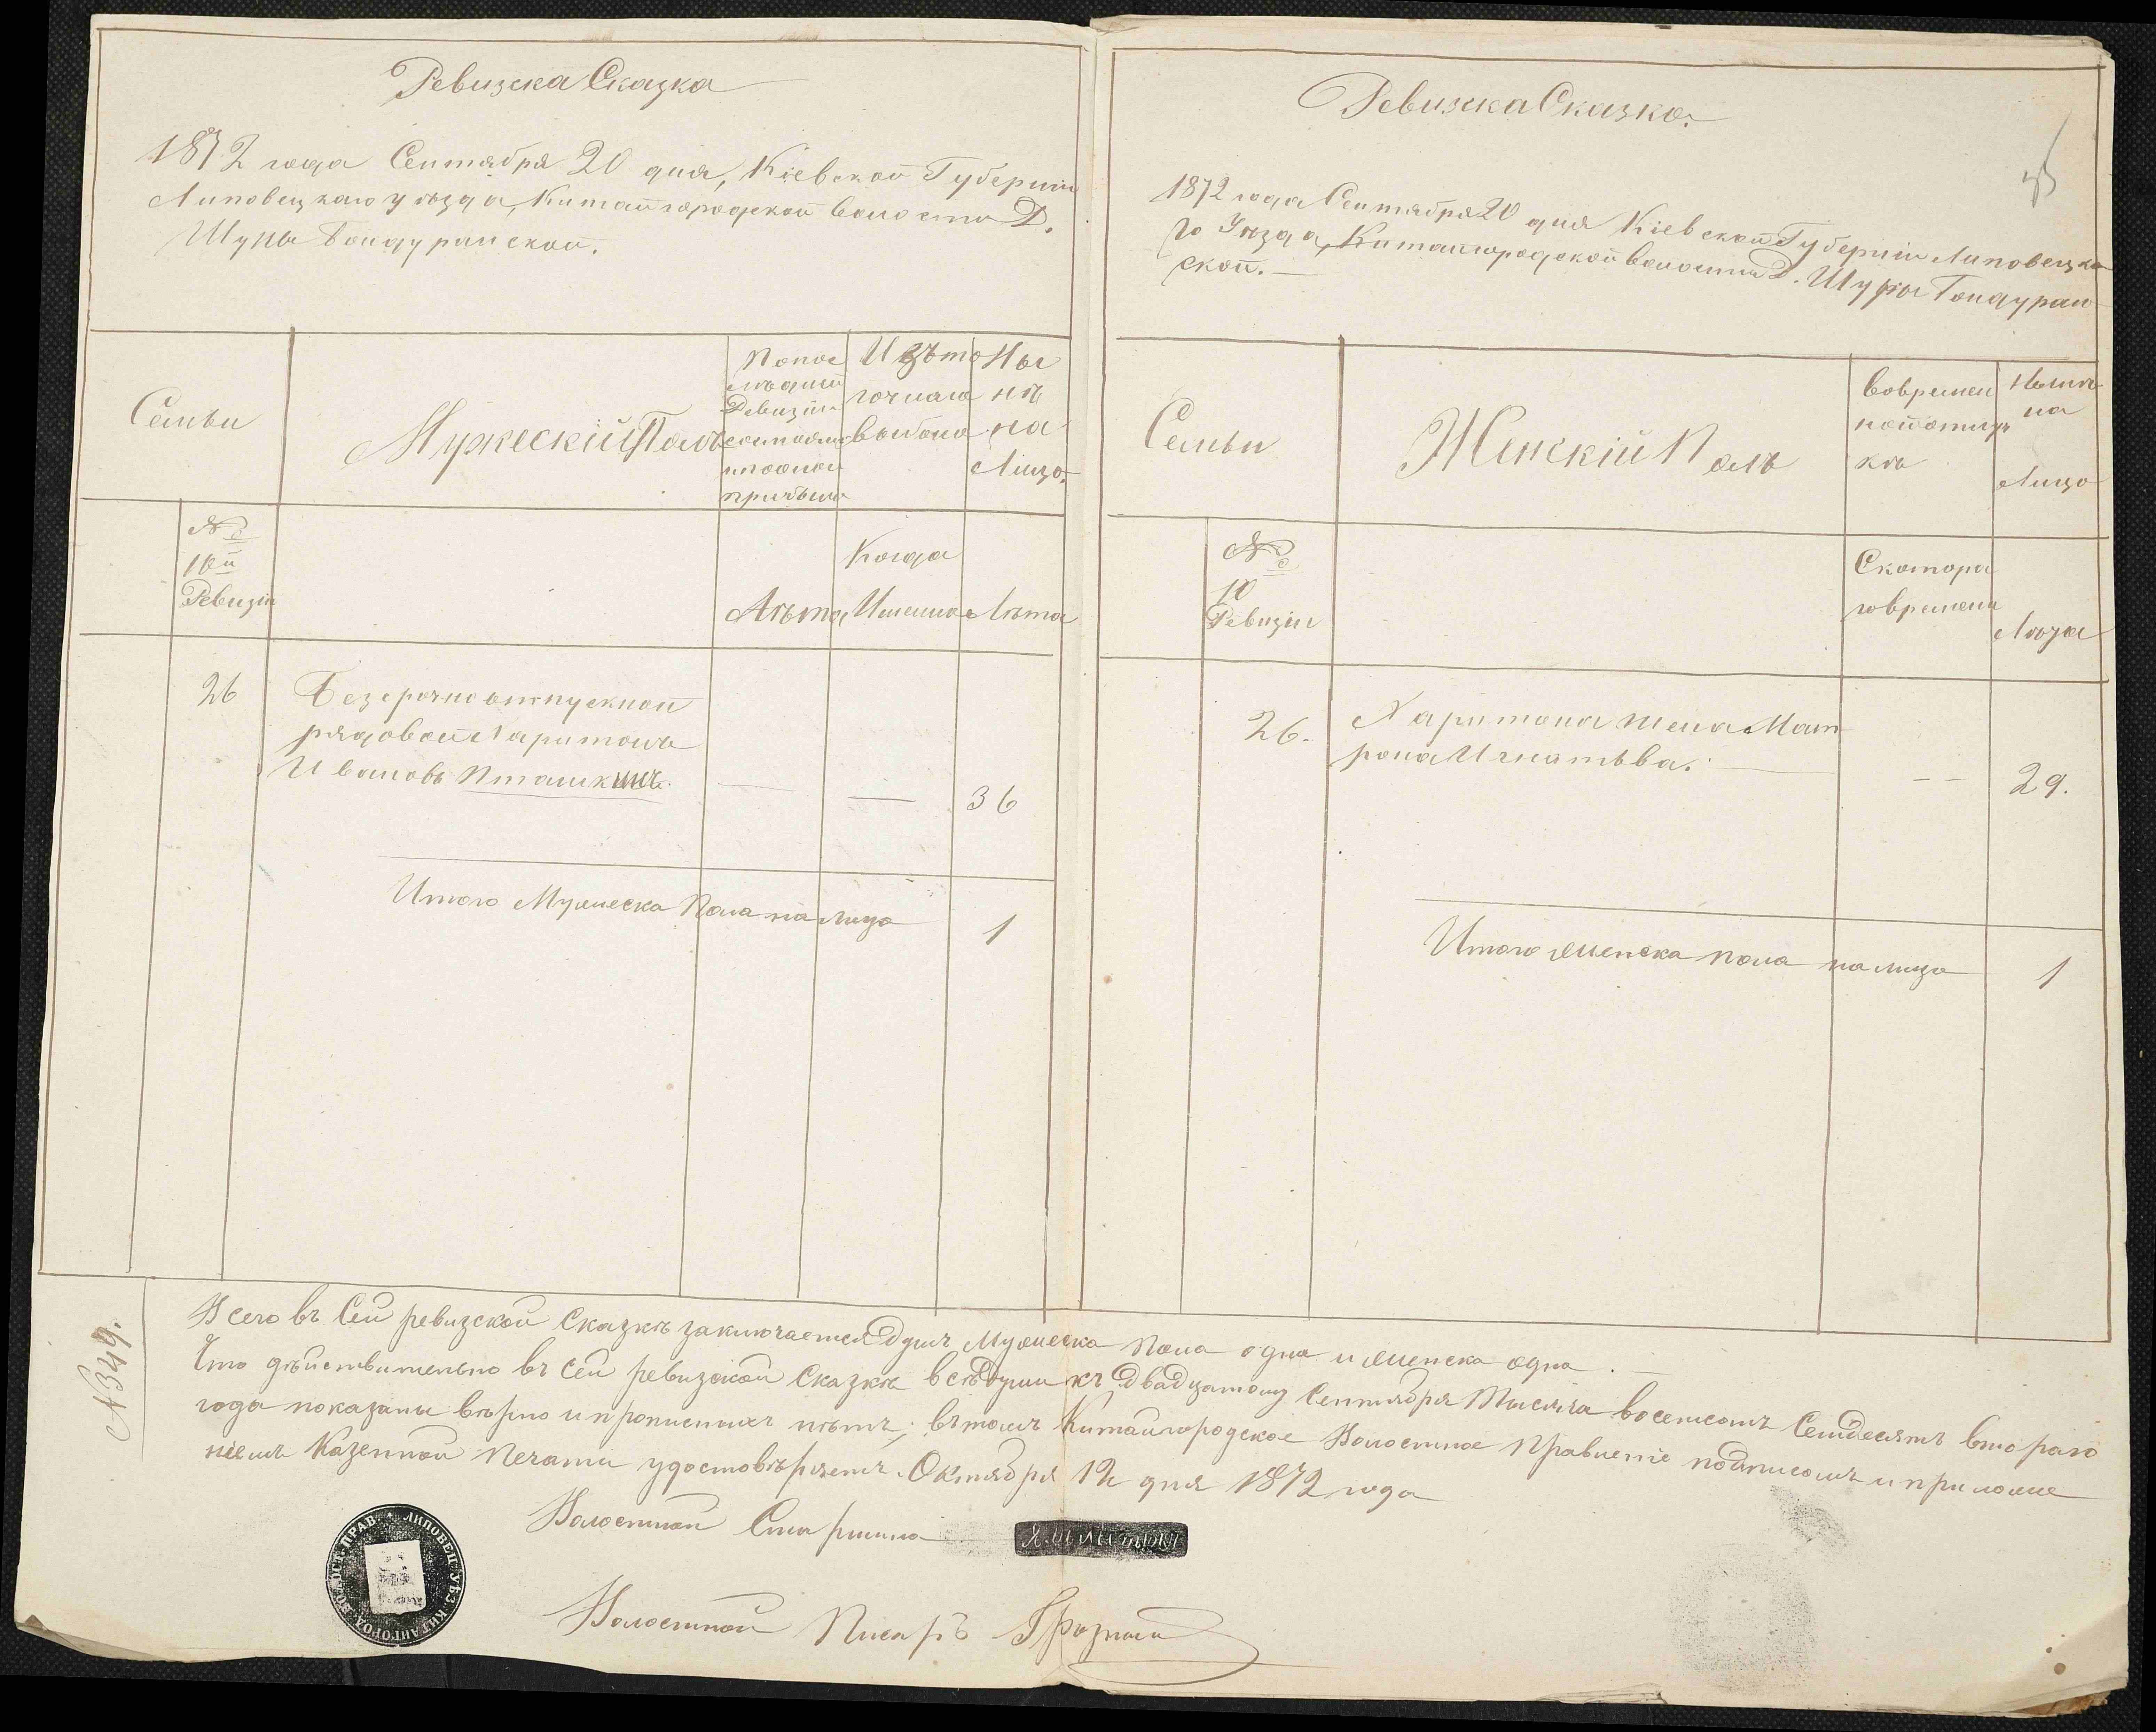 Ревизска Сказка
1872 года Сентября 20 дня, Кіевской Губерніи
Липовецкаго уѣзда, Китайгородской волости Д.
Шуры Бондуранской.
Семьи
Мужескій Полъ
По пос
лѣдней
Ревизіи
состояло
и послѣ
прибыло
Изъ то
го числа
выбыло
Ны
нѣ
на
Лицо.
№
10й
Ревизіи
Лѣта
Когда
Именно
Лѣта
26
Безсрочно отпускной
рядовой Харитонъ
Ивановъ Пташкинъ.
— — 36
Итого Мужеска Пола на лицо 1
Ревизска Сказка.
1872 года Сентября 20 дня Кіевской Губерніи Липовецка
го Уѣзда, Китайгородской волости Д. Шуры Бондуран
ской.—
Семьи
Женскій Полъ
Во времен
ной отлуч
кѣ
Нынѣ
на
Лицо
№
10
Ревизіи
С котора
го времени
Лѣта
26.
Харитона жена Мат
рона Игнатьва.
— — 29.
Итого женска пола на лицо 1
№349.
Всего въ Сей ревизской Сказкѣ заключается Душъ Мужеска Пола одна и женска одна.—
Что дѣйствительно въ сей ревизской Сказкѣ всѣ Души къ Двадцатому Сентября Тысяча восемсотъ Семдесятъ втораго
года показаны вѣрно и прописныхъ нѣтъ; въ томъ Китайгородское Волостное Правленіе подписомъ и приложе
ніемъ Казенной Печати удостовѣряетъ. Октября 12 дня 1872 года
Волостной Старшина
Волостной Писарь
ЛИПОВЕЦ. УѢЗ. КИТАЙГОРОД. ВОЛОСТ. ПРАВ.